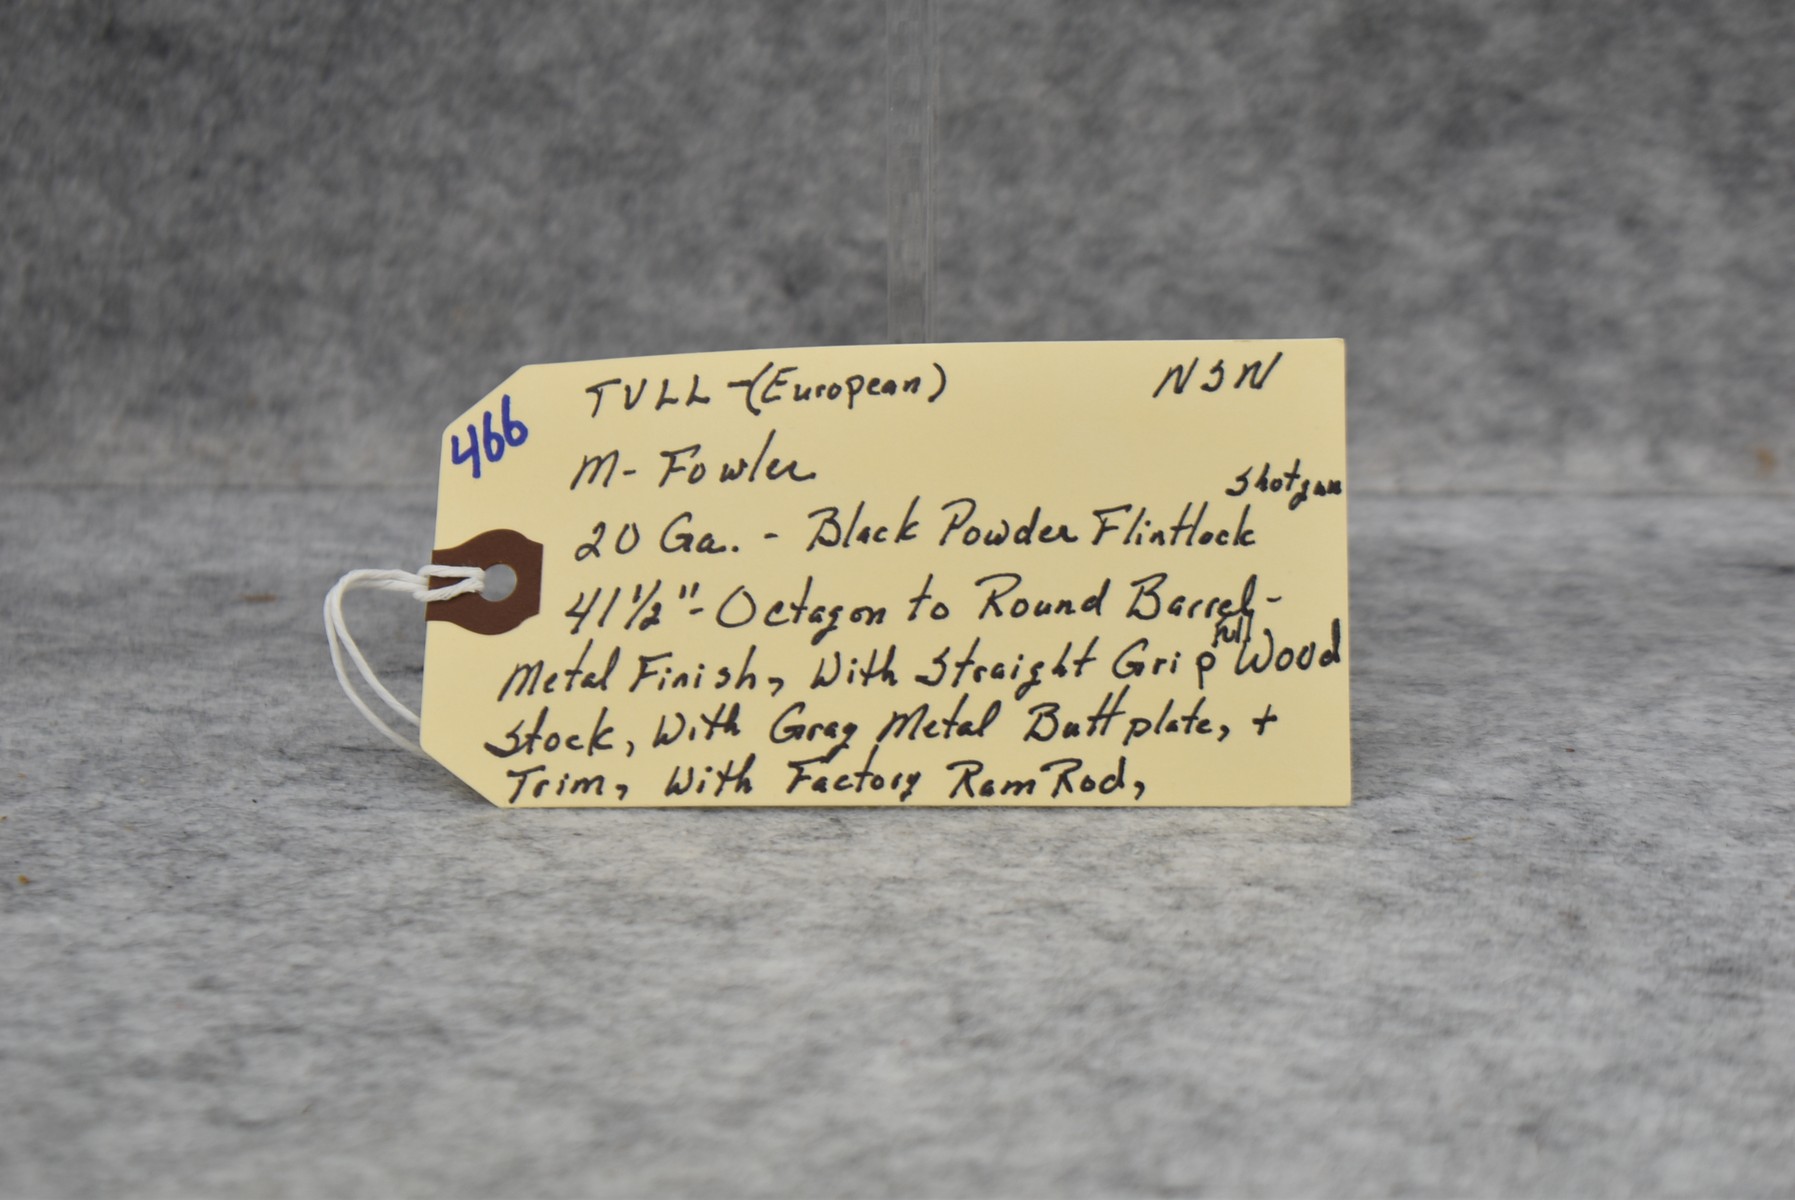 466
TVLL-(European) NSN
M- Fowler
20 Ga. - Black Powder Flintlock Shotgun
41 1/2"- Octagon to Round Barrel-
Metal Finish, With Straight Grip Full Wood
Stock, With Gray Metal Buttplate, +
Trim, With Factory Ram Rod,